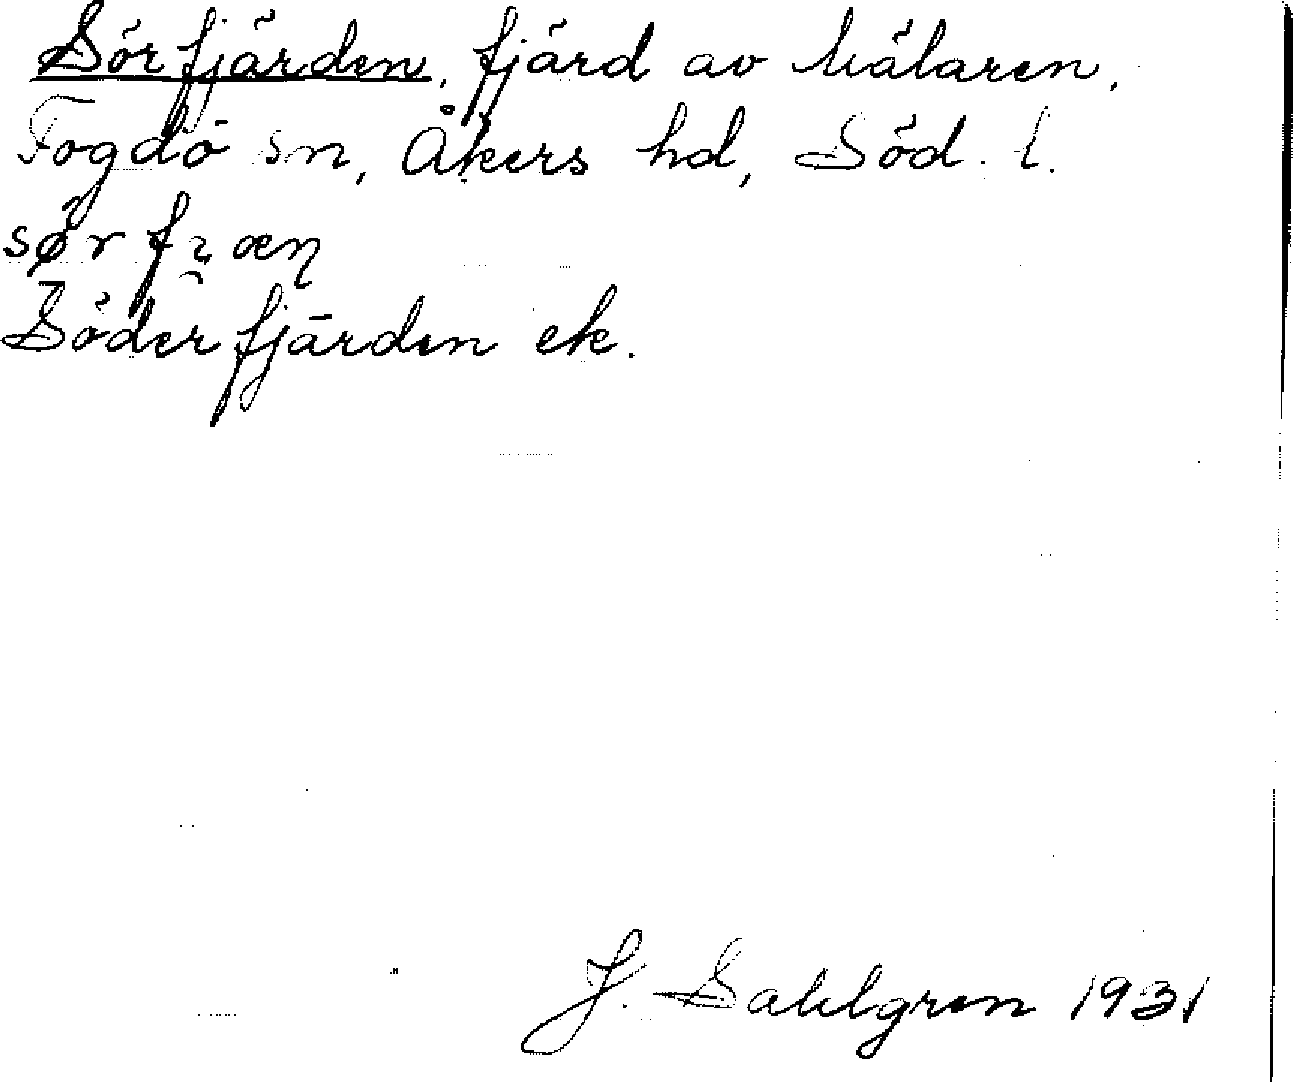 Sörfjärden, fjärd av Mälaren,
Fogdö sn, Åkers hd, Söd. l.
Söderfjärden ek.
J. Sahlgren 1931